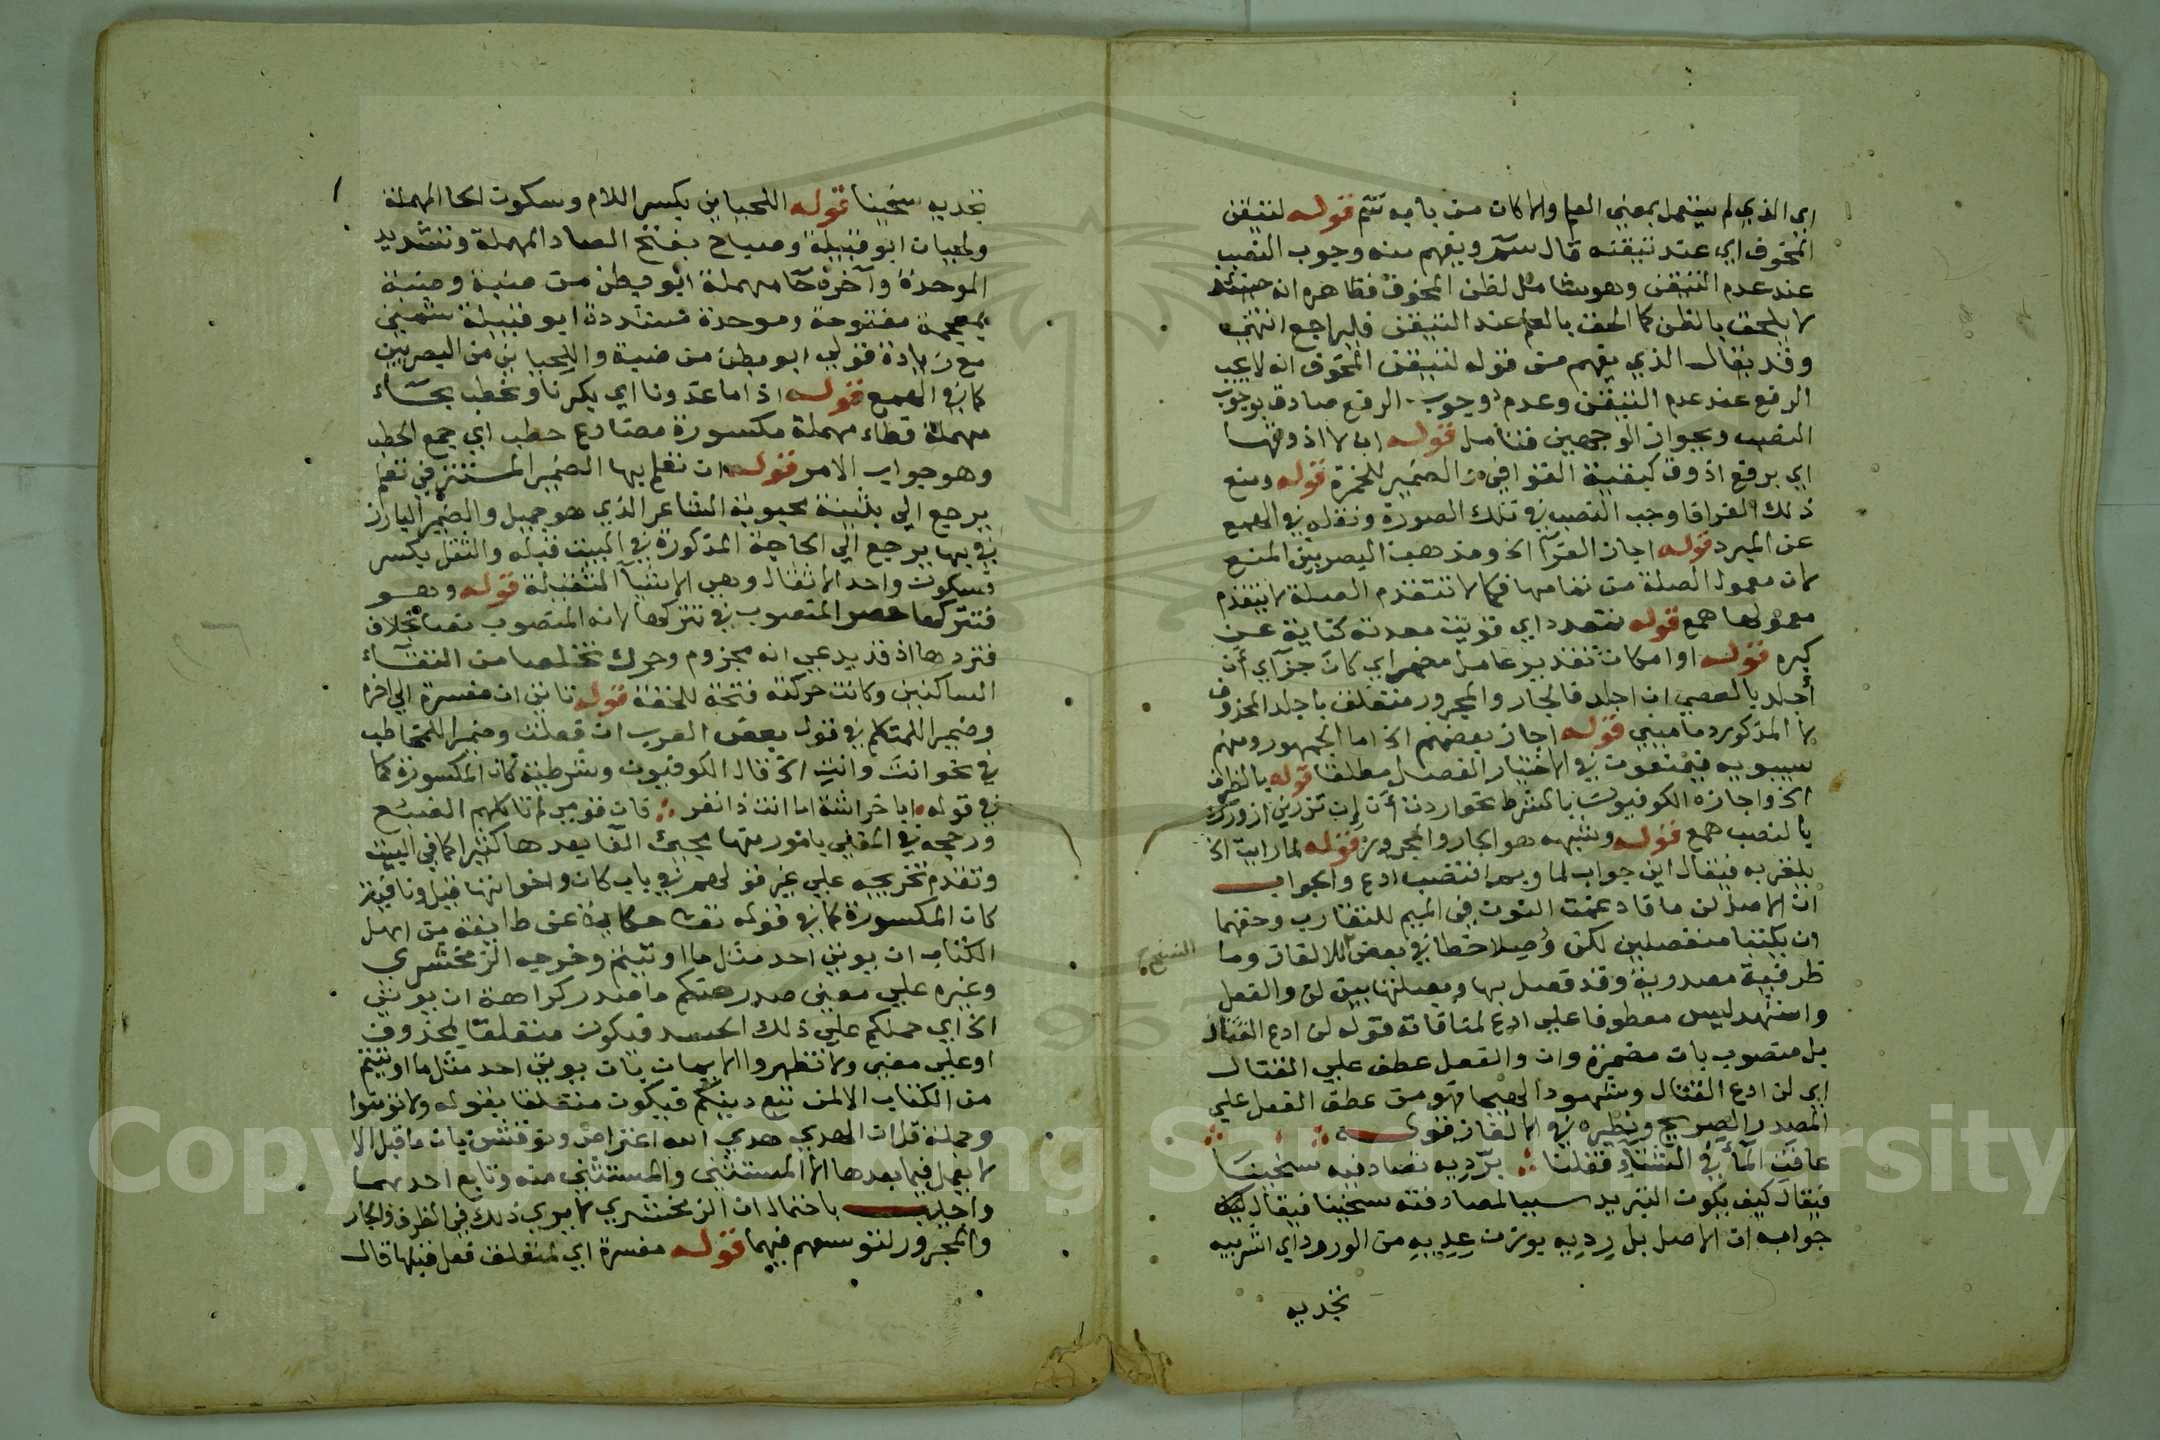 اي الذي لم يستعمل بمعني العلم والا كان من بابه تتم قوله لتيقن
المخوف اي عند تيقنه قال سم ويفهم منه وجوب النصب
عند عدم التيقن وهو شامل لظن المخوف فظاهره انه حينئذ
لا يلحق بالظن كما الحق بالعلم عند التيقن فليراجع انتهي
وقد يقال الذي يفهم من قوله لتيقن المخوف انه لا يجب
الرفع عند عدم التيقن وعدم وجوب الرفع صادق بوجوب
النصب وبجواز الوجهين فتأمل قوله ان لا اذوقها
اي برفع اذوق كبقية القوافي والضمير للخمرة قوله ومنع
ذلك الفرا فاوجب النصب في تلك الصورة ونقله في الهمع
عن المبرد قوله اجاز الفرآ الخ ومذهب البصريين المنع
لان معمول الصلة من تمامها فكما لا تتقدم الصلة لا يتقدم
معمولها همع قوله تمعدد اي قويت معدته كناية عن
كبره قوله او امكان تقدير عامل مضمر اي كان جزآي أن
أجلد بالعصي ان اجلد فالجار والمجرور متعلق باجلد المحذوف
لا المذكور دماميني قوله اجاز بعضهم الخ اما الجمهور ومنهم
سيبويه فيمنعون في الاختيار الفصل مطلقا قوله بالظرف
الخ واجازه الكوفيون بالشرط نحو اردت أن إن تزرني ازورك
بالنصب همع قوله وشبهه هو الجار والمجرور قوله لما رايت الخ
يلغز به فيقال اين جواب لما وبم انتصب ادع والجواب
ان الاصل لن ما فادغمت النون في الميم للتقارب وحقهما
ان يكتبا منفصلين لكن وُصِلا خطا في بعض للالغاز وما
النسخ
ظرفية مصدرية وقد فصل بها وبصلتها بين لن والفعل
واشهد ليس معطوفا علي ادع لمنافاته قوله لن ادع القتال
بل منصوب بان مضمرة وان والفعل عطف علي القتال
اي لن ادع القتال وشهود الهيجا فهو من عطف الفعل علي
المصدر الصريح ونظيره في الالغاز قوله
عافَتِ المآءَ في الشتاءِ فقلنا بَرِّدِيه تصادفيه سخينَا
فيقال كيف يكون التبريد سببا لمصادفته سخينا فيقال
جوابه ان الاصل بل رِدِيه بوزن عِدِيهِ من الورود اي اشربيه
نجديه
نجديه سخينا قوله اللحياني بكسر اللام وسكون الحا المهملة
ولحيان ابو قبيلة وصباح بفتح الصاد المهملة وتشديد
الموحدة وآخره حآ مهملة ابو بطن من ضبة وضبة
بمعجمة مفتوحة وموحدة مشددة ابو قبيلة شمني
مع زيادة قولي ابو بطن من ضبة واللحياني من البصريين
كما في الهمع قوله اذا ما غدونا اي بكرنا ونحطب بحآء
مهملة فطاء مهملة مكسورة مضارع حطب اي جمع الحطب
وهو جواب الامر قوله ان تعلم بها الضمير المستتر في تعلم
يرجع الي بثينة محبوبة الشاعر الذي هو جميل والضمير البارز
في بها يرجع الي الحاجة المذكورة في البيت قبله والثقل بكسر
فسكون واحد الاثقال وهي الاشيآ الثقيلة قوله وهو
فتتركها حصر المنصوب في تتركها لانه المنصوب نصا بخلاف
فتردها اذ قد يدعي انه مجزوم وحرك تخلصا من التقآء
الساكنين وكانت حركته فتحة للخفة قوله تاتي ان مفسرة الي اخره
وضميرا للمتكلم في قول بعض العرب ان فعلت وضميرا للمخاطب
في نحو انتَ وانتِ الخ قال الكوفيون وشرطية كان المكسورة كما
في قوله ابا خراشة اما انت ذا نفر فان قومي لم تاكلهم الضبع
ورجحه في المغني بامور منها مجيئ الفا بعدها كثيرا كما في البيت
وتقدم تخريجه علي غير قولهم في باب كان واخواتها قيل ونافية
كان المكسورة كما في قوله تعالى حكاية عن طايفة من اهل
الكتاب ان يوتي احد مثل ما اوتيتم وخرجه الزمخشري
وغيره علي معني صدر منكم ما صدر كراهة ان يوتي
الخ اي حملكم علي ذلك الحسد فيكون متعلقا لمحذوف
او علي معني ولا تظهروا الايمان بان يوتي احد مثل ما اوتيتم
من الكتاب الا لمن تبع دينكم فيكون متعلقا بقوله ولا تومنوا
وجملة قل ان الهدي هدي الله اعتراض ونوقش بان ما قبل الا
لا يعمل فيما بعدها الا المستثني والمستثني منه وتابع احدهما
واجيب باحتمال ان الزمخشري لا يري ذلك في الظرف والجار
والمجرور لتوسعهم فيهما قوله مفسرة اي لمتعلق فعل قبلها قال